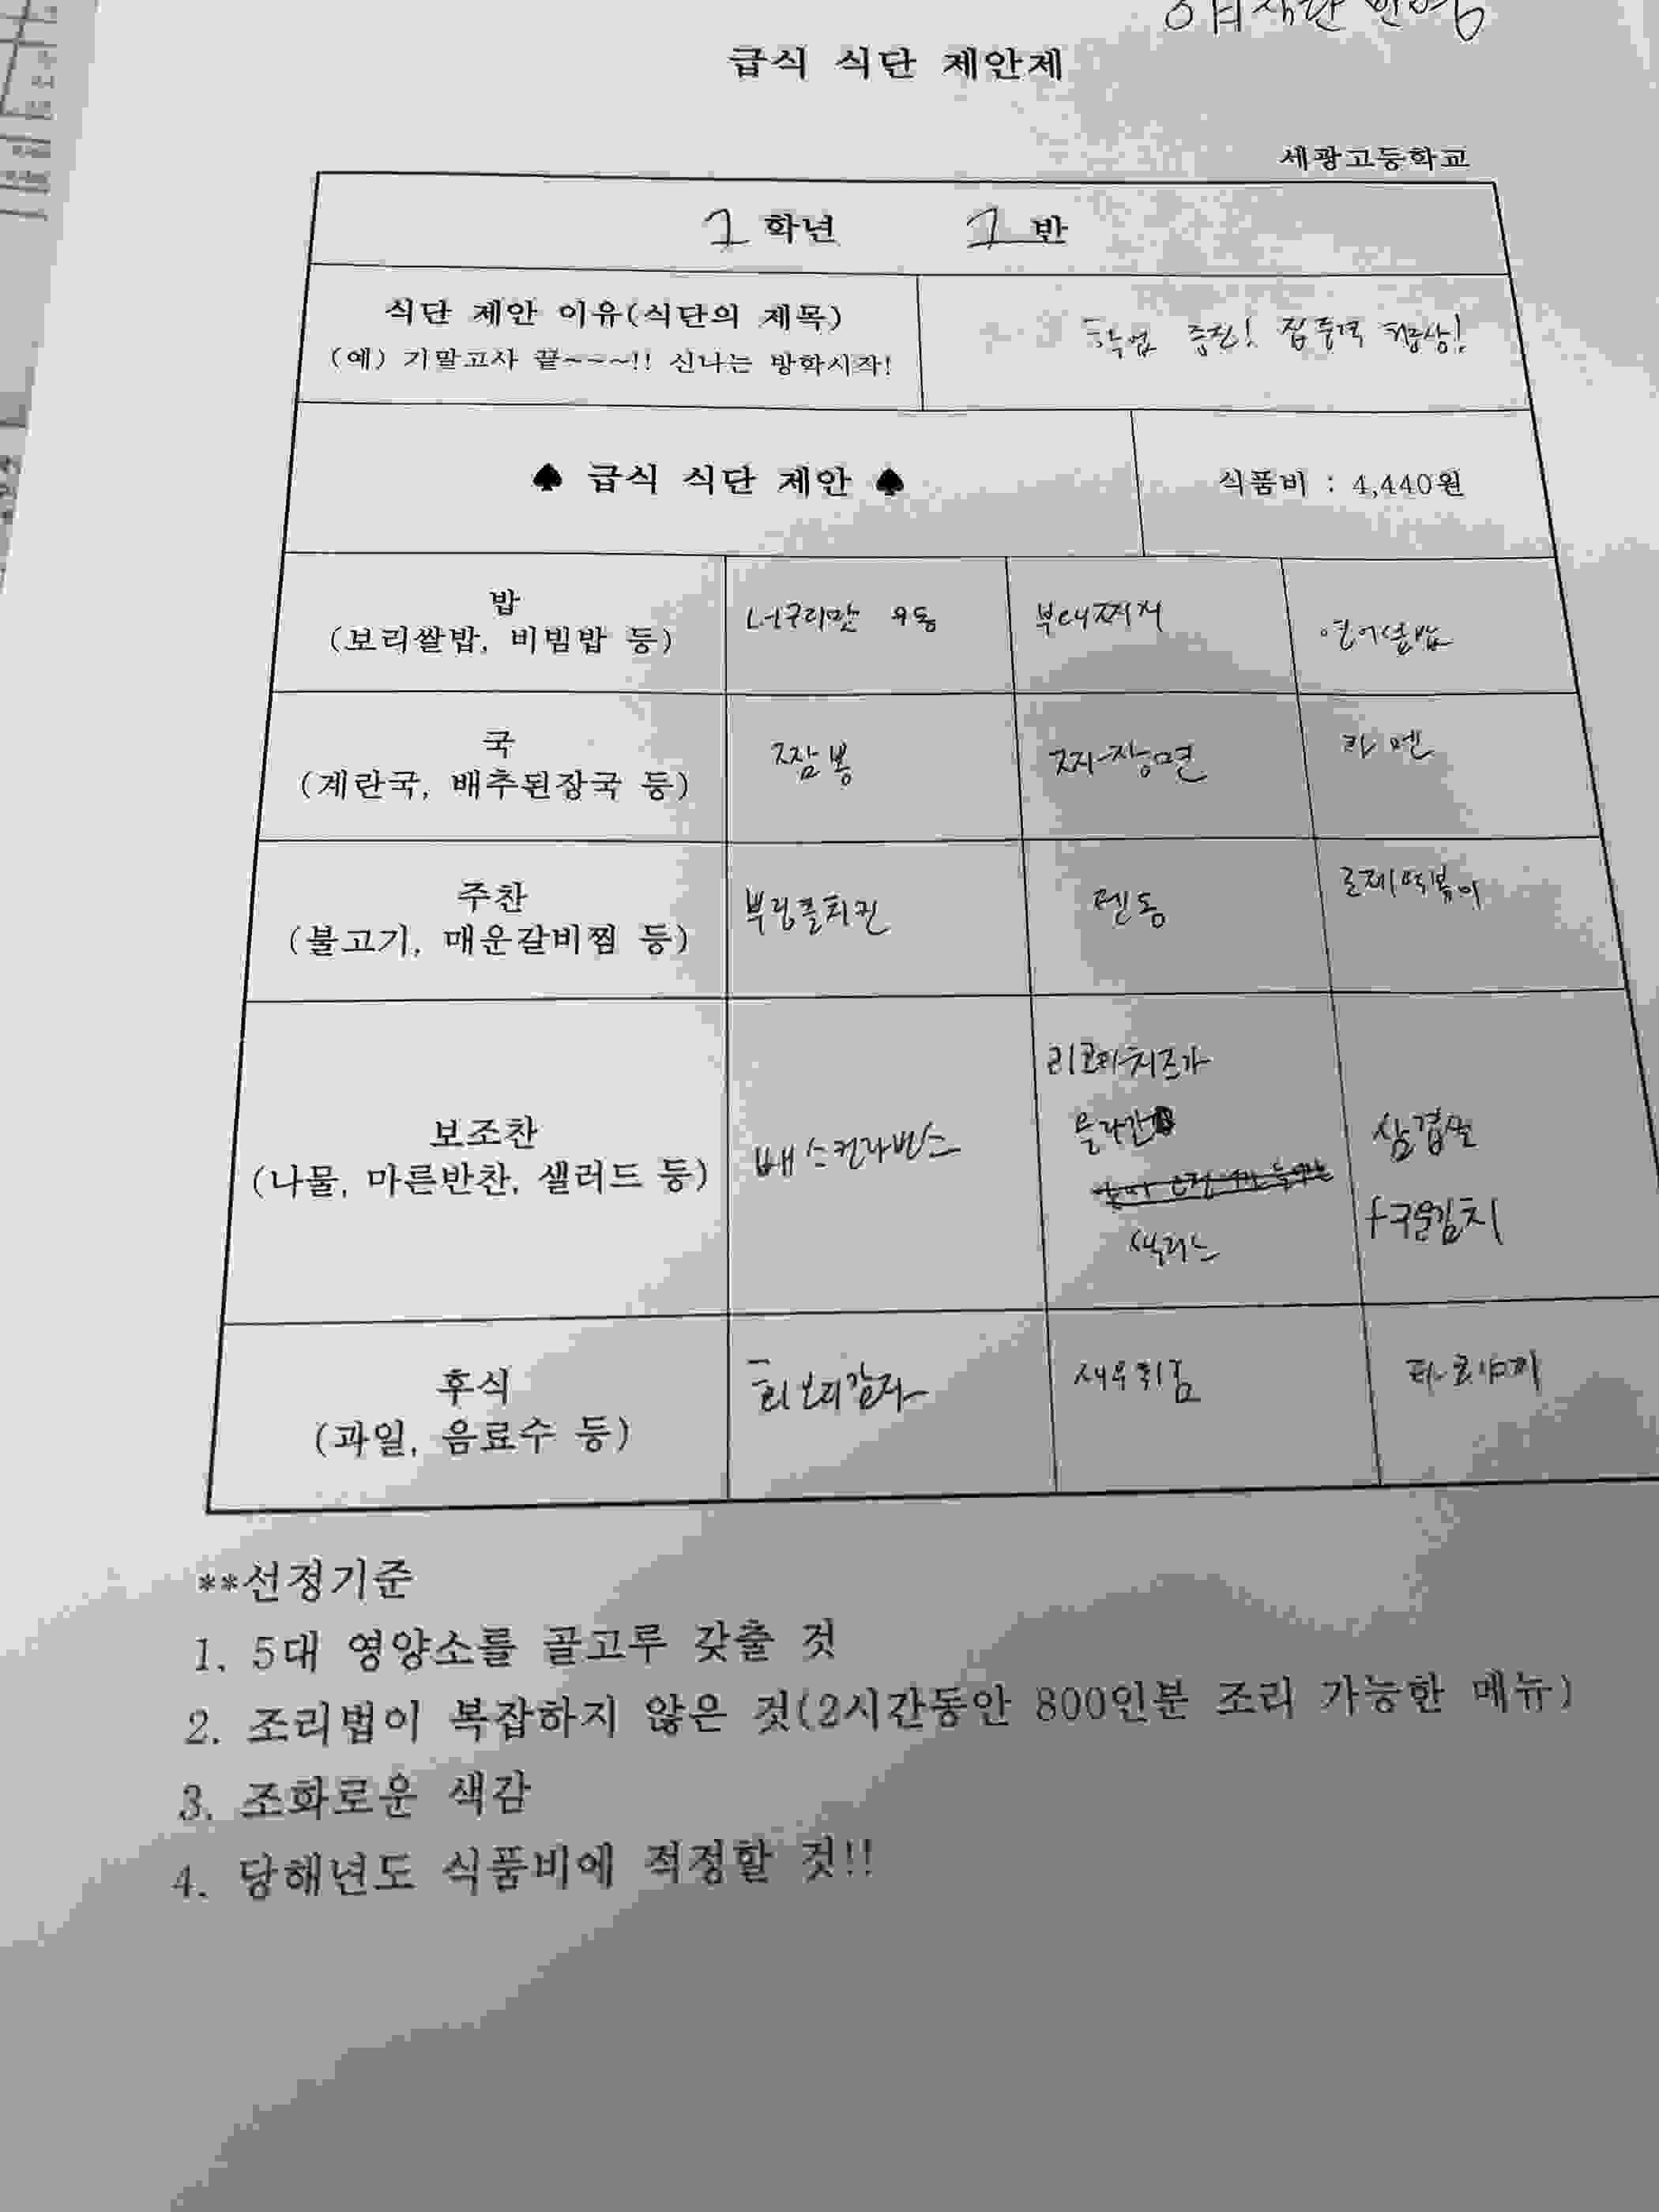 급식 식단 제안제
세광고등학교
1 학년 1 반
식단 제안 이유(식단의 제목)
(예) 기말고사 끝~~~!! 신나는 방학시작!
학업 증진! 집중력 향상!
♠ 급식 식단 제안 ♠
식품비 : 4,440원
밥
(보리쌀밥, 비빔밥 등)
너구리맛 우동
부대찌개
연어덮밥
국
(계란국, 배추된장국 등)
짬뽕
짜장면
라멘
주찬
(불고기, 매운갈비찜 등)
뿌링클치킨
텐동
로제떡볶이
보조찬
(나물, 마른반찬, 샐러드 등)
배스킨라빈스
리코타치즈가
올라간
샐러드
삼겹살
+구운김치
후식
(과일, 음료수 등)
회오리감자
새우튀김
타코야끼
**선정기준
1. 5대 영양소를 골고루 갖출 것
2. 조리법이 복잡하지 않은 것(2시간동안 800인분 조리 가능한 메뉴)
3. 조화로운 색감
4. 당해년도 식품비에 적정할 것!!